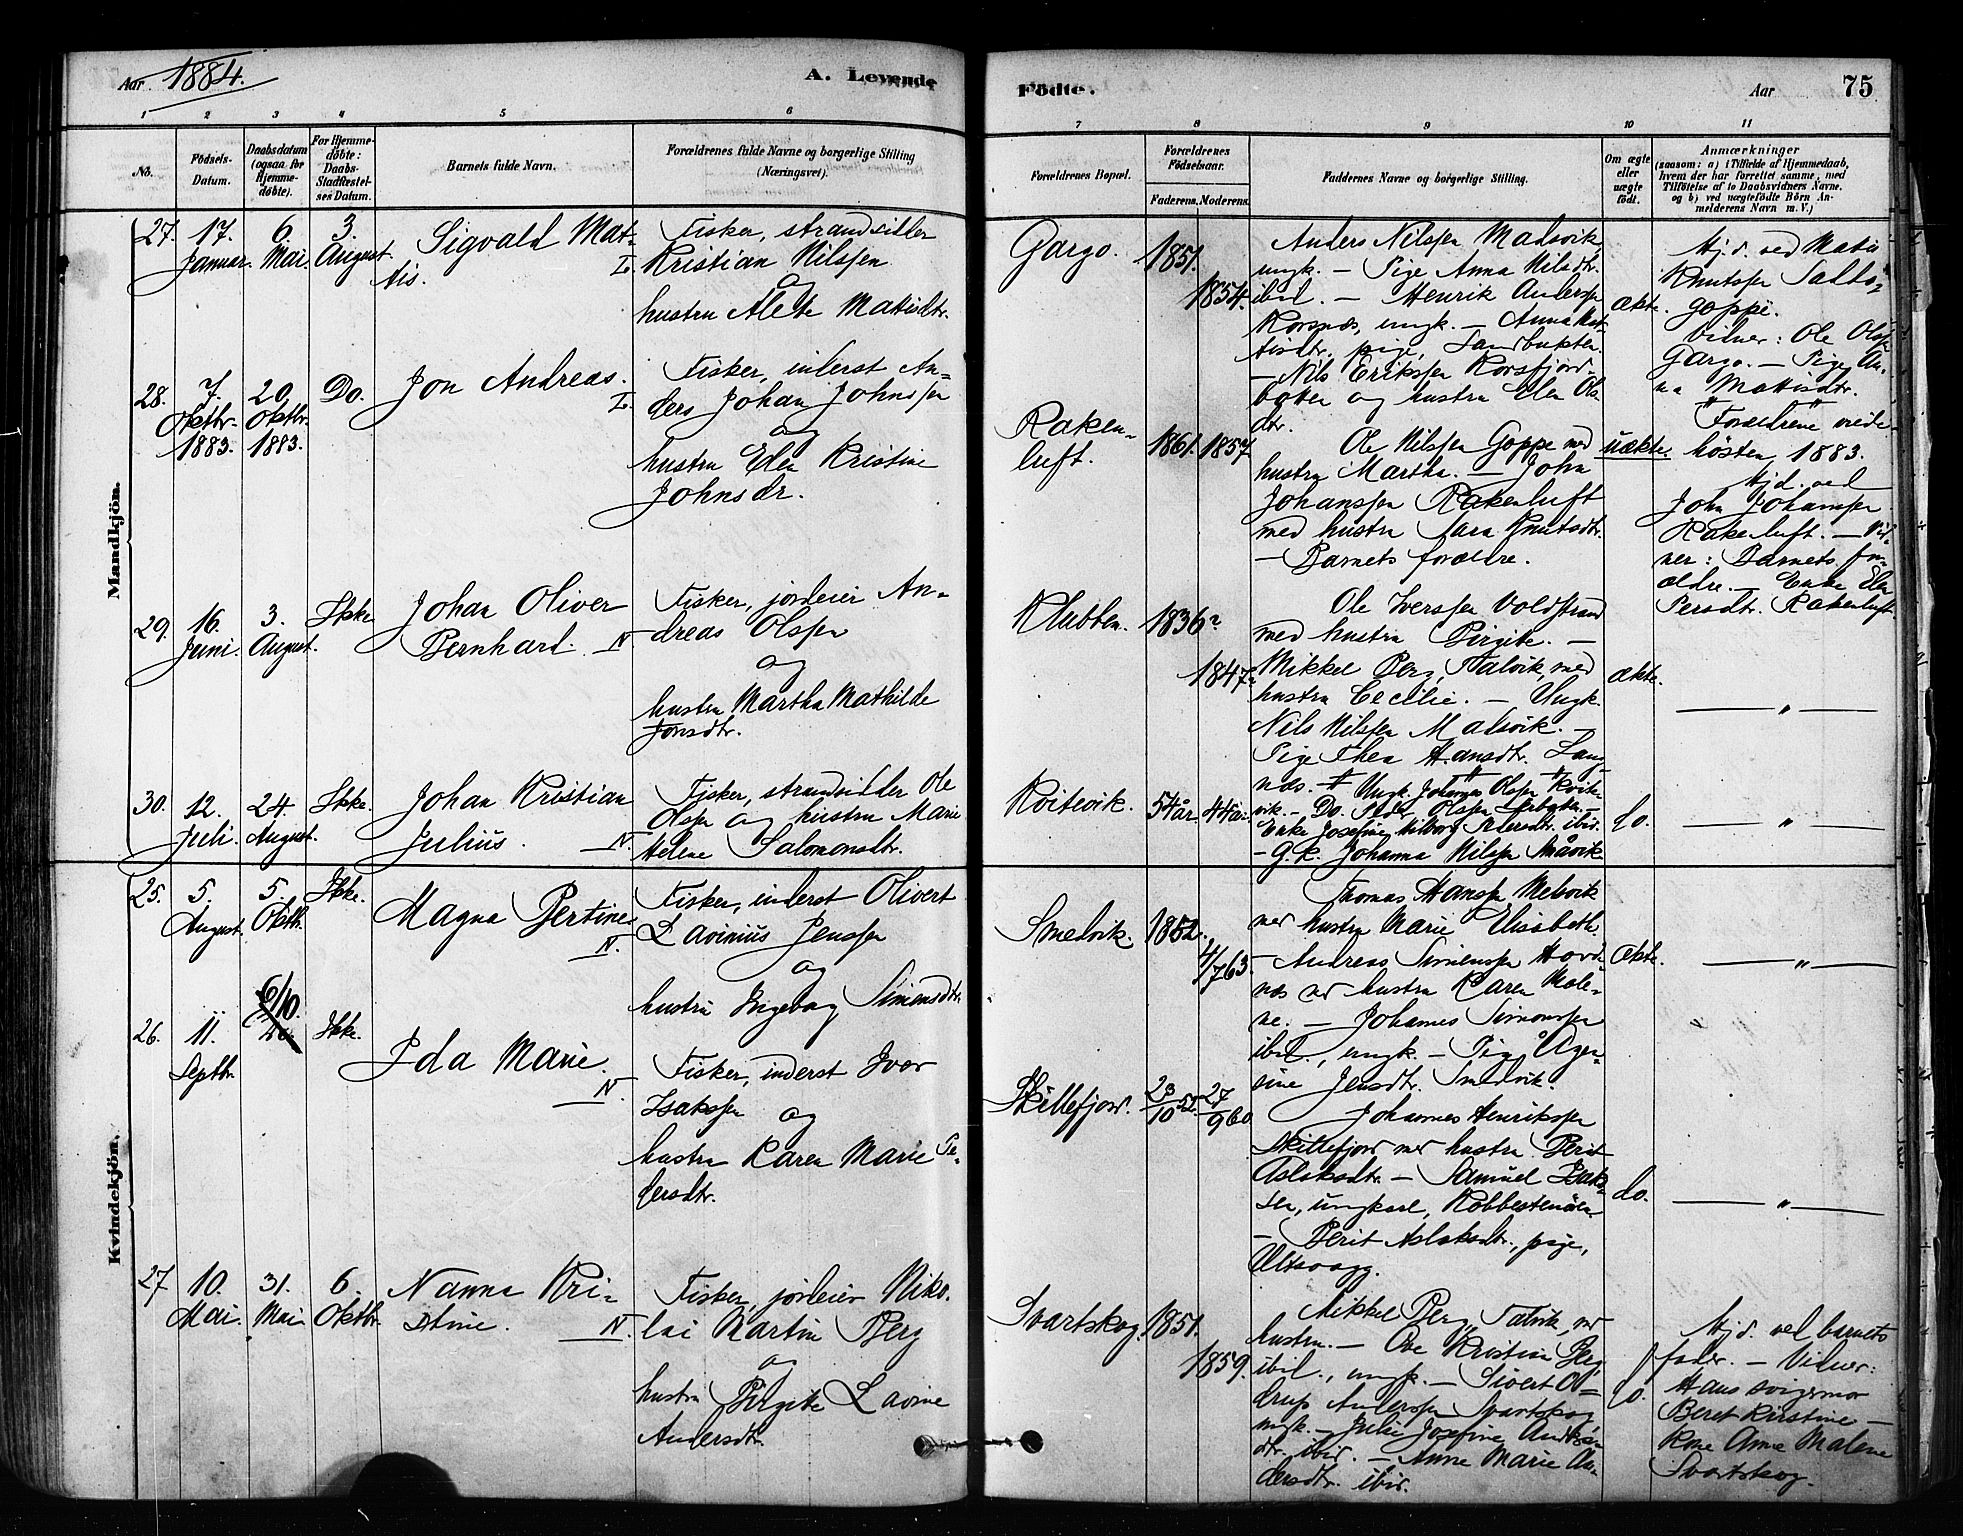 Aar 1884.
A. Levende
Födte.
Aar
75
1 2 3 4 5 6 7 8 9 10 11
No.
Födsels-
Datum.
Daabsdatum
(ogsaa for
Hjemme-
döbte).
For Hjemme-
döbte:
Daabs-
Stadfæstel-
ses Datum.
Barnets fulde Navn.
Forældrenes fulde Navne og borgerlige Stilling
(Næringsvei).
Forældrenes Bopæl.
Forældrenes
Födselsaar.
Faderens. Moderens.
Faddernes Navne og borgerlige Stilling.
Om ægte
eller
uægte
födt.
Anmærkninger
(saasom: a) i Tilfælde af Hjemmedaab,
hvem der har forrettet samme, med
Tilföielse af to Daabsvidners Navne,
og b) ved uægtefödte Börn An-
melderens Navn m. V.)
Mandkjön.
27. 17. 6. 3.
Januar. Mai. August.
Sigvald Mat-
tis. L.
Fisker, strandsidder
Kristian Nilssen
og
hustru Alete Mattisdtr.
Gargo. 1851.
1854.
Anders Nilssen Madsvik,
ungk. — Pige Anna Nilsdtr.
ibid. — Henrik Anderssen
Korsnæs, ungk. — Anna Mat-
tisdtr., pige, Sandbukten.
— Nils Erikssen Korsfjord-
botten og hustru Elen Ols-
dtr.
ækte.
Hjd. ved Matis
Knutssen
goppi.
Vidner: Ole Olssen
Gargo. — Pige An-
na Mattisdtr.
28. 7. 20. Do.
Oktbr. Oktbr.
1883. 1883.
Jon Andreas.
L.
Fisker, inderst An-
ders Johan Johnssen
og
hustru Elen Kristine
Johnsdr.
Raken-
luft.
1861. 1857
Ole Nilssen Goppe med
hustru Martha. — John
Johanssen Rakenluft
med hustru Sara Knutsdtr.
— Barnets forældre.
uækte.
Forældrene viede
hösten 1883.
Hjd. ved
John Johanssen
Rakenluft. — Vid-
ner: Barnets for-
ældre. — Enke Elen
Persdtr. Rakenluft.
29. 16. 3. Ikke
Juni. August.
Johan Oliver
Bernhard. N
Fisker, jordeier An-
dreas Olssen
og
hustru Martha Mathilde
Jonsdtr.
Klubben. 1836?
1847?
Ole Iverssen Voldstrand
med hustru Birgite. —
Mikkel Berg, Talvik, med
hustru Cecilie. — Ungk.
Nils Nilssen Madsvik. —
Pige Thea Hansdtr. Lang-
næs.
ækte.
— „ —
30. 12. 24. Ikke.
Juli. August.
Johan Kristian
Julius. N
Fisker, strandsidder Ole
Olssen og hustru Marie
Helene Salomonsdtr.
Kvitevik. 54 år. 44 år.
Ungk. Johannes Olssen Kvite-
vik. — Do. Peder Olssen
Enke Josefine Vilborg Petersdtr. ibid.
— G.k. Johanna Nilssen Småvik
do.
— „ —
Kvindekjön.
25. 5. 5. Ikke.
August. Oktb.
Magna Bertine
N.
Fisker, inderst Olivert
Lavinius Jenssen
og
hustru Ingeborg Simonsdtr.
Smedvik. 1852.
4/7 63.
Thomas Hanssen Melsvik
med hustru Marie Elisabeth.
— Andreas Simonssen Hovd-
næs med hustru Karen Male-
ne. — Johannes Simonssen
ibid., ungk. — Pige Åger-
sine Jensdtr. Smedvik.
Ækte.
— „ —
26. 11. 6/10. Ikke.
Septbr.
Ida Marie.
N.
Fisker, inderst Iver
Isakssen og
hustru Karen Marie Pe-
dersdtr.
Skillefjord. 23/10 52. 27/9 60
Johannes Henrikssen
Skillefjord med hustru Berit
Aslaksdtr. — Samuel Isaks-
sen, ungkarl, Robbestenöen.
— Berit Aslaksdtr., pige,
Altevaag.
do.
— „ —
27 10. 31. 6.
Mai. Mai. Oktbr.
Nanna Kri-
stine. N.
Fisker, jordeier Niko-
lai Martin Berg
og
hustru Birgite Lavine
Andersdtr.
Svartskog 1851.
1859.
Mikkel Berg, Talvik, med
hustru. — Ole Kristian Berg
ibid., ungk. — Sivert O-
drup Anderssen Svartskog,
ungk. — Julie Josefine Anders-
dtr. ibid. — Anne Marie An-
dersdtr. ibid.
do.
Hjd. ved barnets
fader. — Vidner:
Hans svigermor
Beret Kirstine —
Kone Anne Malene
Svartskog.